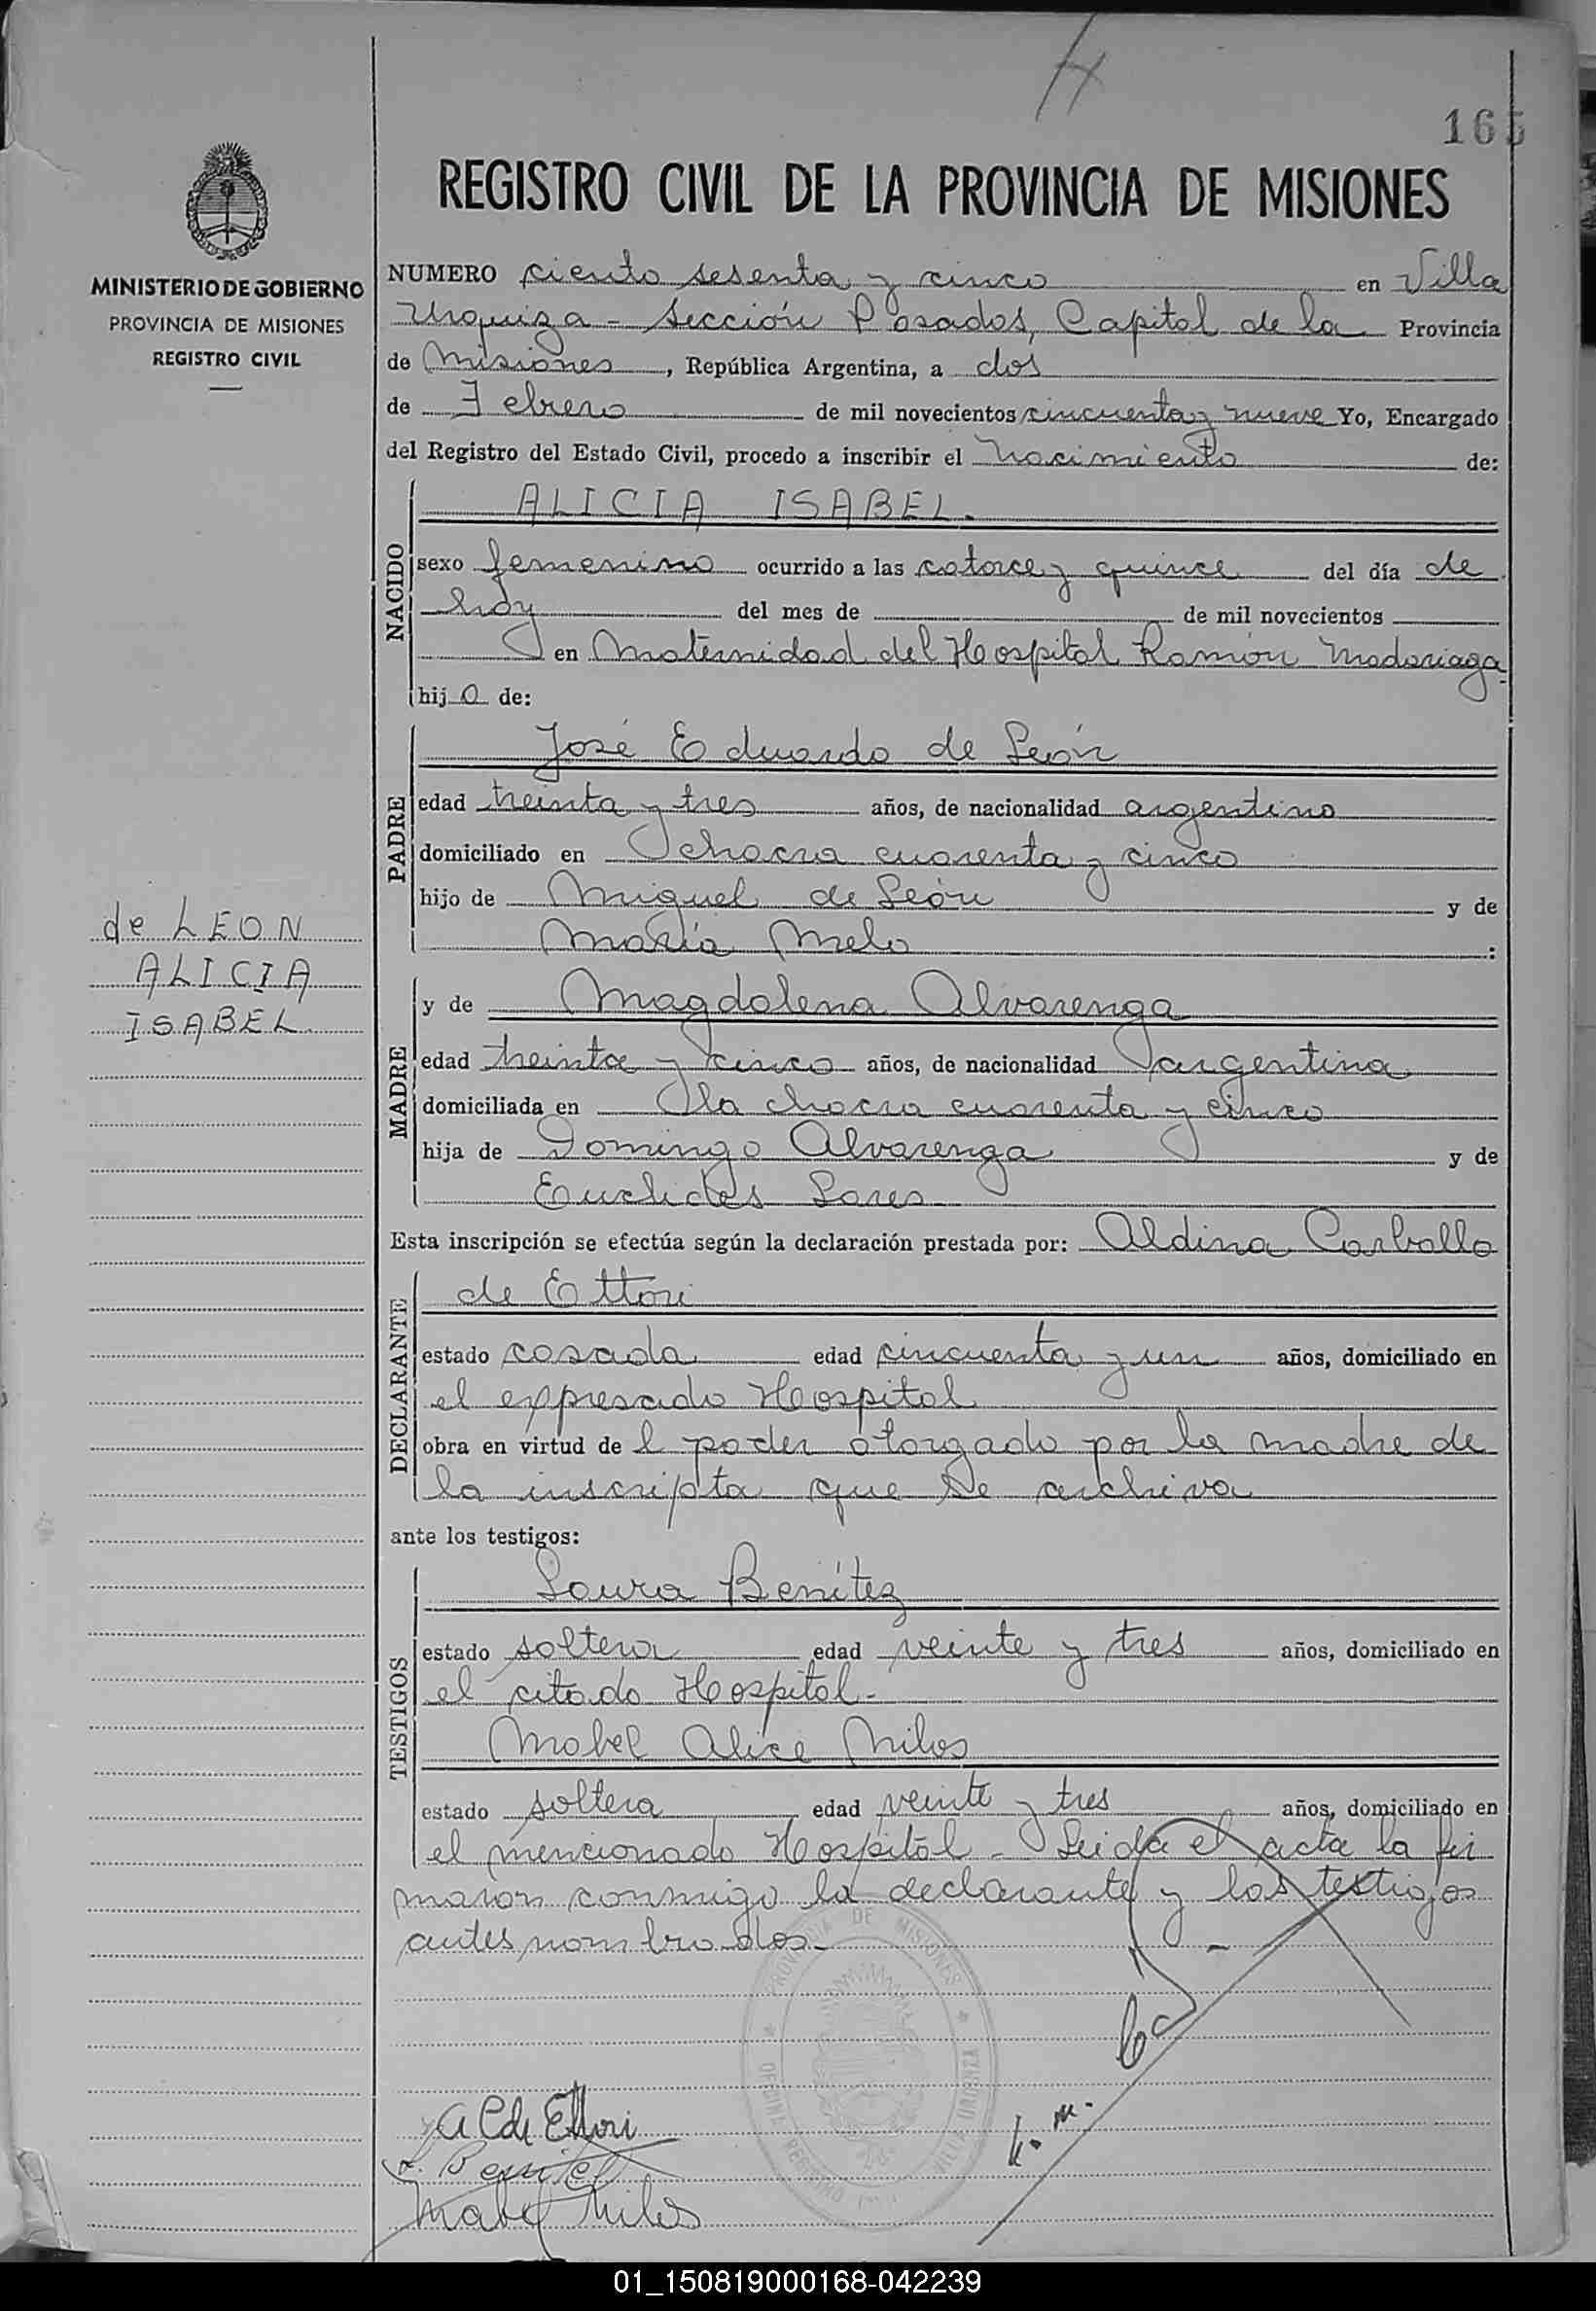 165
REGISTRO CIVIL DE LA PROVINCIA DE MISIONES
MINISTERIO DE GOBIERNO
PROVINCIA DE MISIONES
REGISTRO CIVIL
NUMERO ciento sesenta y cinco en Villa
Urquiza - Sección Posadas, Capital de la Provincia
de Misiones, República Argentina, a dos
de Febrero de mil novecientos cincuenta y nueve Yo, Encargado
del Registro del Estado Civil, procedo a inscribir el nacimiento de:
NACIDO
ALICIA ISABEL.
sexo femenino ocurrido a las catorce y quince del día de
hoy del mes de de mil novecientos
en Maternidad del Hospital Ramón Madariaga
hija de:
PADRE
José Eduardo de León
edad treinta y tres años, de nacionalidad argentino
domiciliado en chacra cuarenta y cinco
hijo de Miguel de León y de
María Melo :
MADRE
y de Magdalena Alvarenga
edad treinta y cinco años, de nacionalidad argentina
domiciliada en la chacra cuarenta y cinco
hija de Domingo Alvarenga y de
Euclides
Esta inscripción se efectúa según la declaración prestada por: Aldina Carballo
DECLARANTE
de Ettori
estado casada edad cincuenta y un años, domiciliado en
el expresado Hospital
obra en virtud del poder otorgado por la madre de
la inscripta que se archiva
ante los testigos:
TESTIGOS
Laura Benítez
estado soltera edad veinte y tres años, domiciliado en
el citado Hospital-
Mabel Alice Milos
estado soltera edad veinte y tres años, domiciliado en
el mencionado Hospital - Leida el acta la fir
maron conmigo la declarante y los testigos
antes nombrados-
de LEON
ALICIA
ISABEL.
PROVINCIA DE MISIONES
OFICINA REGISTRO CIVIL VILLA URQUIZA
A C de Ettori
L. Benitez
Mabel Milos
01_150819000168-042239